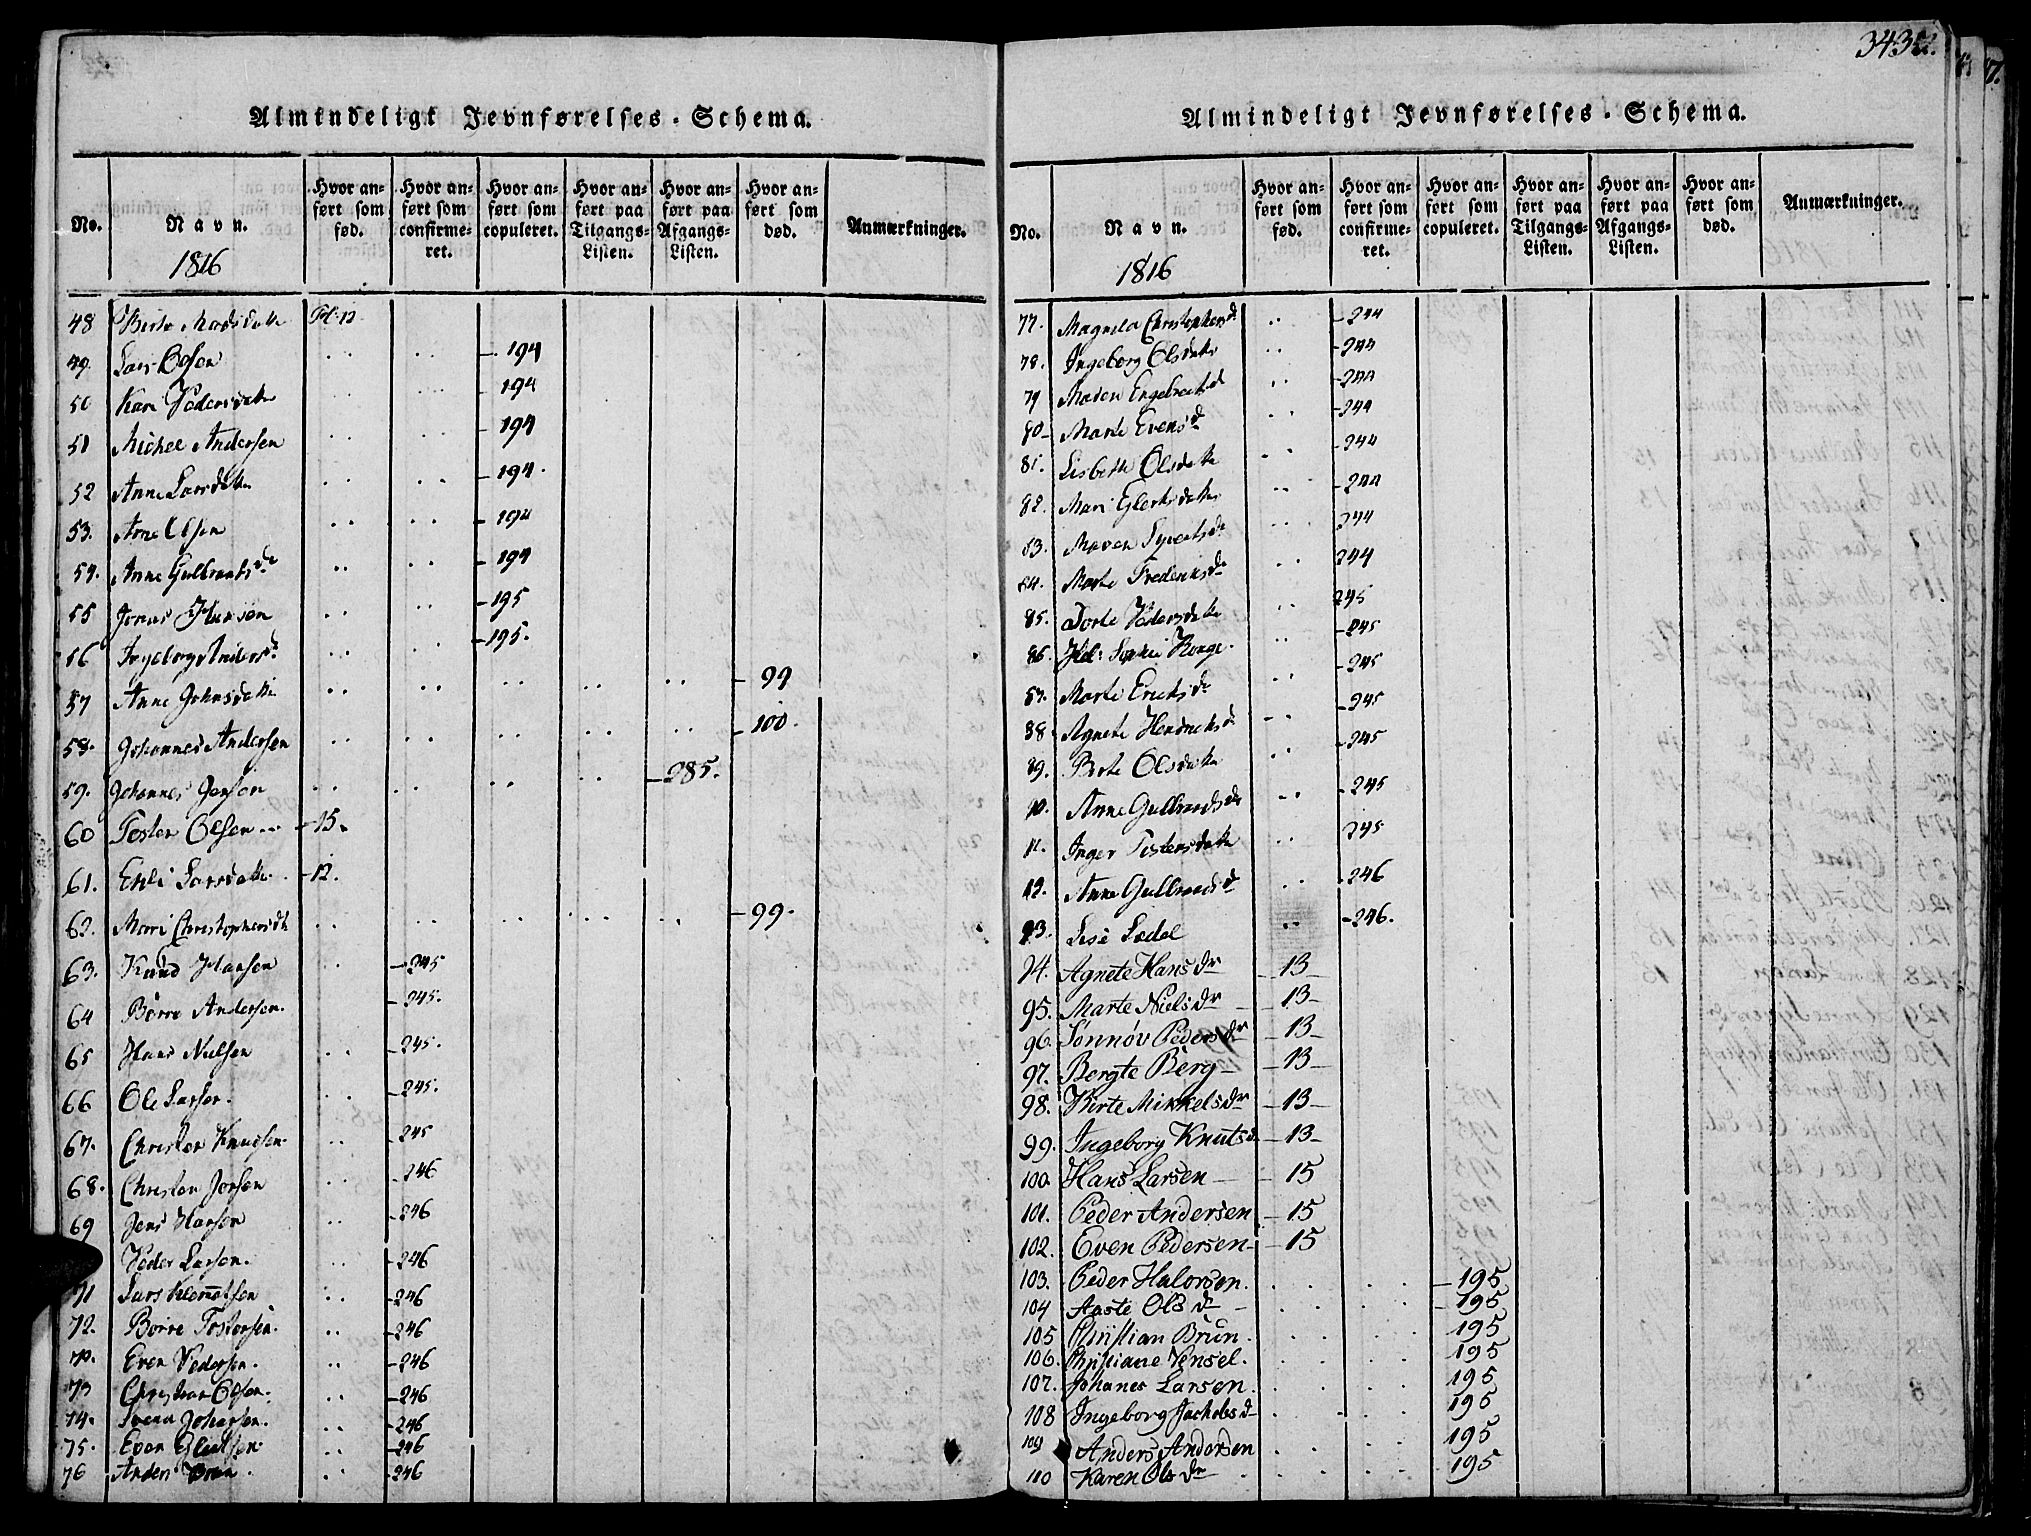 343
Almindeligt Jevnførelses-Schema.
No. Navn. Hvor anført som fød. Hvor anført som confirmeret. Hvor anført som copuleret. Hvor anført paa Tilgangs-Listen. Hvor anført paa Afgangs-Listen. Hvor anført som død. Anmærkninger.
1816
48 Birte Madsdatte Fol: 12
49. Lars Olsen - 194
50 Kari Pedersdatte - 194
51 Michel Andersen - 194
52 Anne Larsdatte - 194.
53. Arne Olsen - 194
54. Anne Gulbrands d - 194
55 Jonas Hansen - 195
56 Ingeborg Anders d - 195.
57 Anne Johnsdatte - 99
58. Johannes Andersen - 100.
59. Johannes Jensen - 285.
60 Tosten Olsen - 15.
61. Eli Larsdatte - 12.
62. Mari Christophersdt - 99.
63. Knud Hansen - 245
64 Børre Andersen. - 245.
65 Hans Nielsen - 245.
66 Ole Larsen. - 245.
67. Christen Knudsen - 245
68. Christen Jensen - 246
69 Jens Hansen - 246
Peder Larsen. - 246
71 Lars Klemetsen - 246
72. Børre Tostensen. - 246
Even Pedersen. - 246
73 Christian Olsen. - 246
74. Svend Johansen. - 246
75. Even - 246
76 Anders Brun. - 246
Almindeligt Jevnførelses-Schema.
No. Navn. Hvor anført som fød. Hvor anført som confirmeret. Hvor anført som copuleret. Hvor anført paa Tilgangs-Listen. Hvor anført paa Afgangs-Listen. Hvor anført som død. Anmærkninger.
1816
77. Magnila Christophersd - 244
78. Ingeborg Olsdatte - 244
79 Maren Engebretsd - 244
80 Marte Evensd - 244
81. Lisbeth Olsdatte - 244
82. Mari - 244
83. Maren Syvertsd 244
84. Marte Frederiksd 244
85. Dorte Pedersdatte 245
86. Sophie - 245
87. Marte Eriksd - 245
88 Agnete Hendriks d - 245
89. Birte Olsdatte - 245
90. Anne Gulbrandsd - 245
91. Inger Tostensdatte 245
92. Anne Gulbrandsd - 246
93. Lise - 246.
94. Agnete Hans Dr - 13 -
95. Marte Niels Dr - 13 -
96. Sønnøv Peders Dr - 13 -
97. Bergte Berg - 13 -
98. Birte Mikkels Dr - 13 -
99. Ingeborg Knuts d. - 13 -
100. Hans Larsen - 15
101. Peder Andersen - 15
102. Even Pedersen - 15
103. Peder Halorsen. - 195
104 Aaste Ols Dr - 195
105 Christian Brun. 195
106. Christiane Vensel. 195
107. Johanes Larsen. 195
108 Ingeborg Jachobs d 195
109 Anders Andersen 195
110 Karen Ols Dr 195